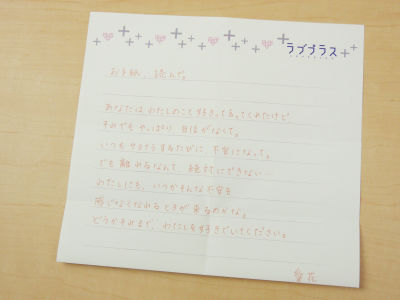 ラブプラス
お手紙、読んだ。
あなたはわたしのこと好きってゆってくれたけど
それでもやっぱり自信がなくて。
いつもケンカするたびに、不安になって。
でも離れるなんて、絶対にできない…
わたしにも、いつかそんな不安を
感じなくなれるときが来るのかな。
どうかそれまで、わたしを好きでいてください。
愛花